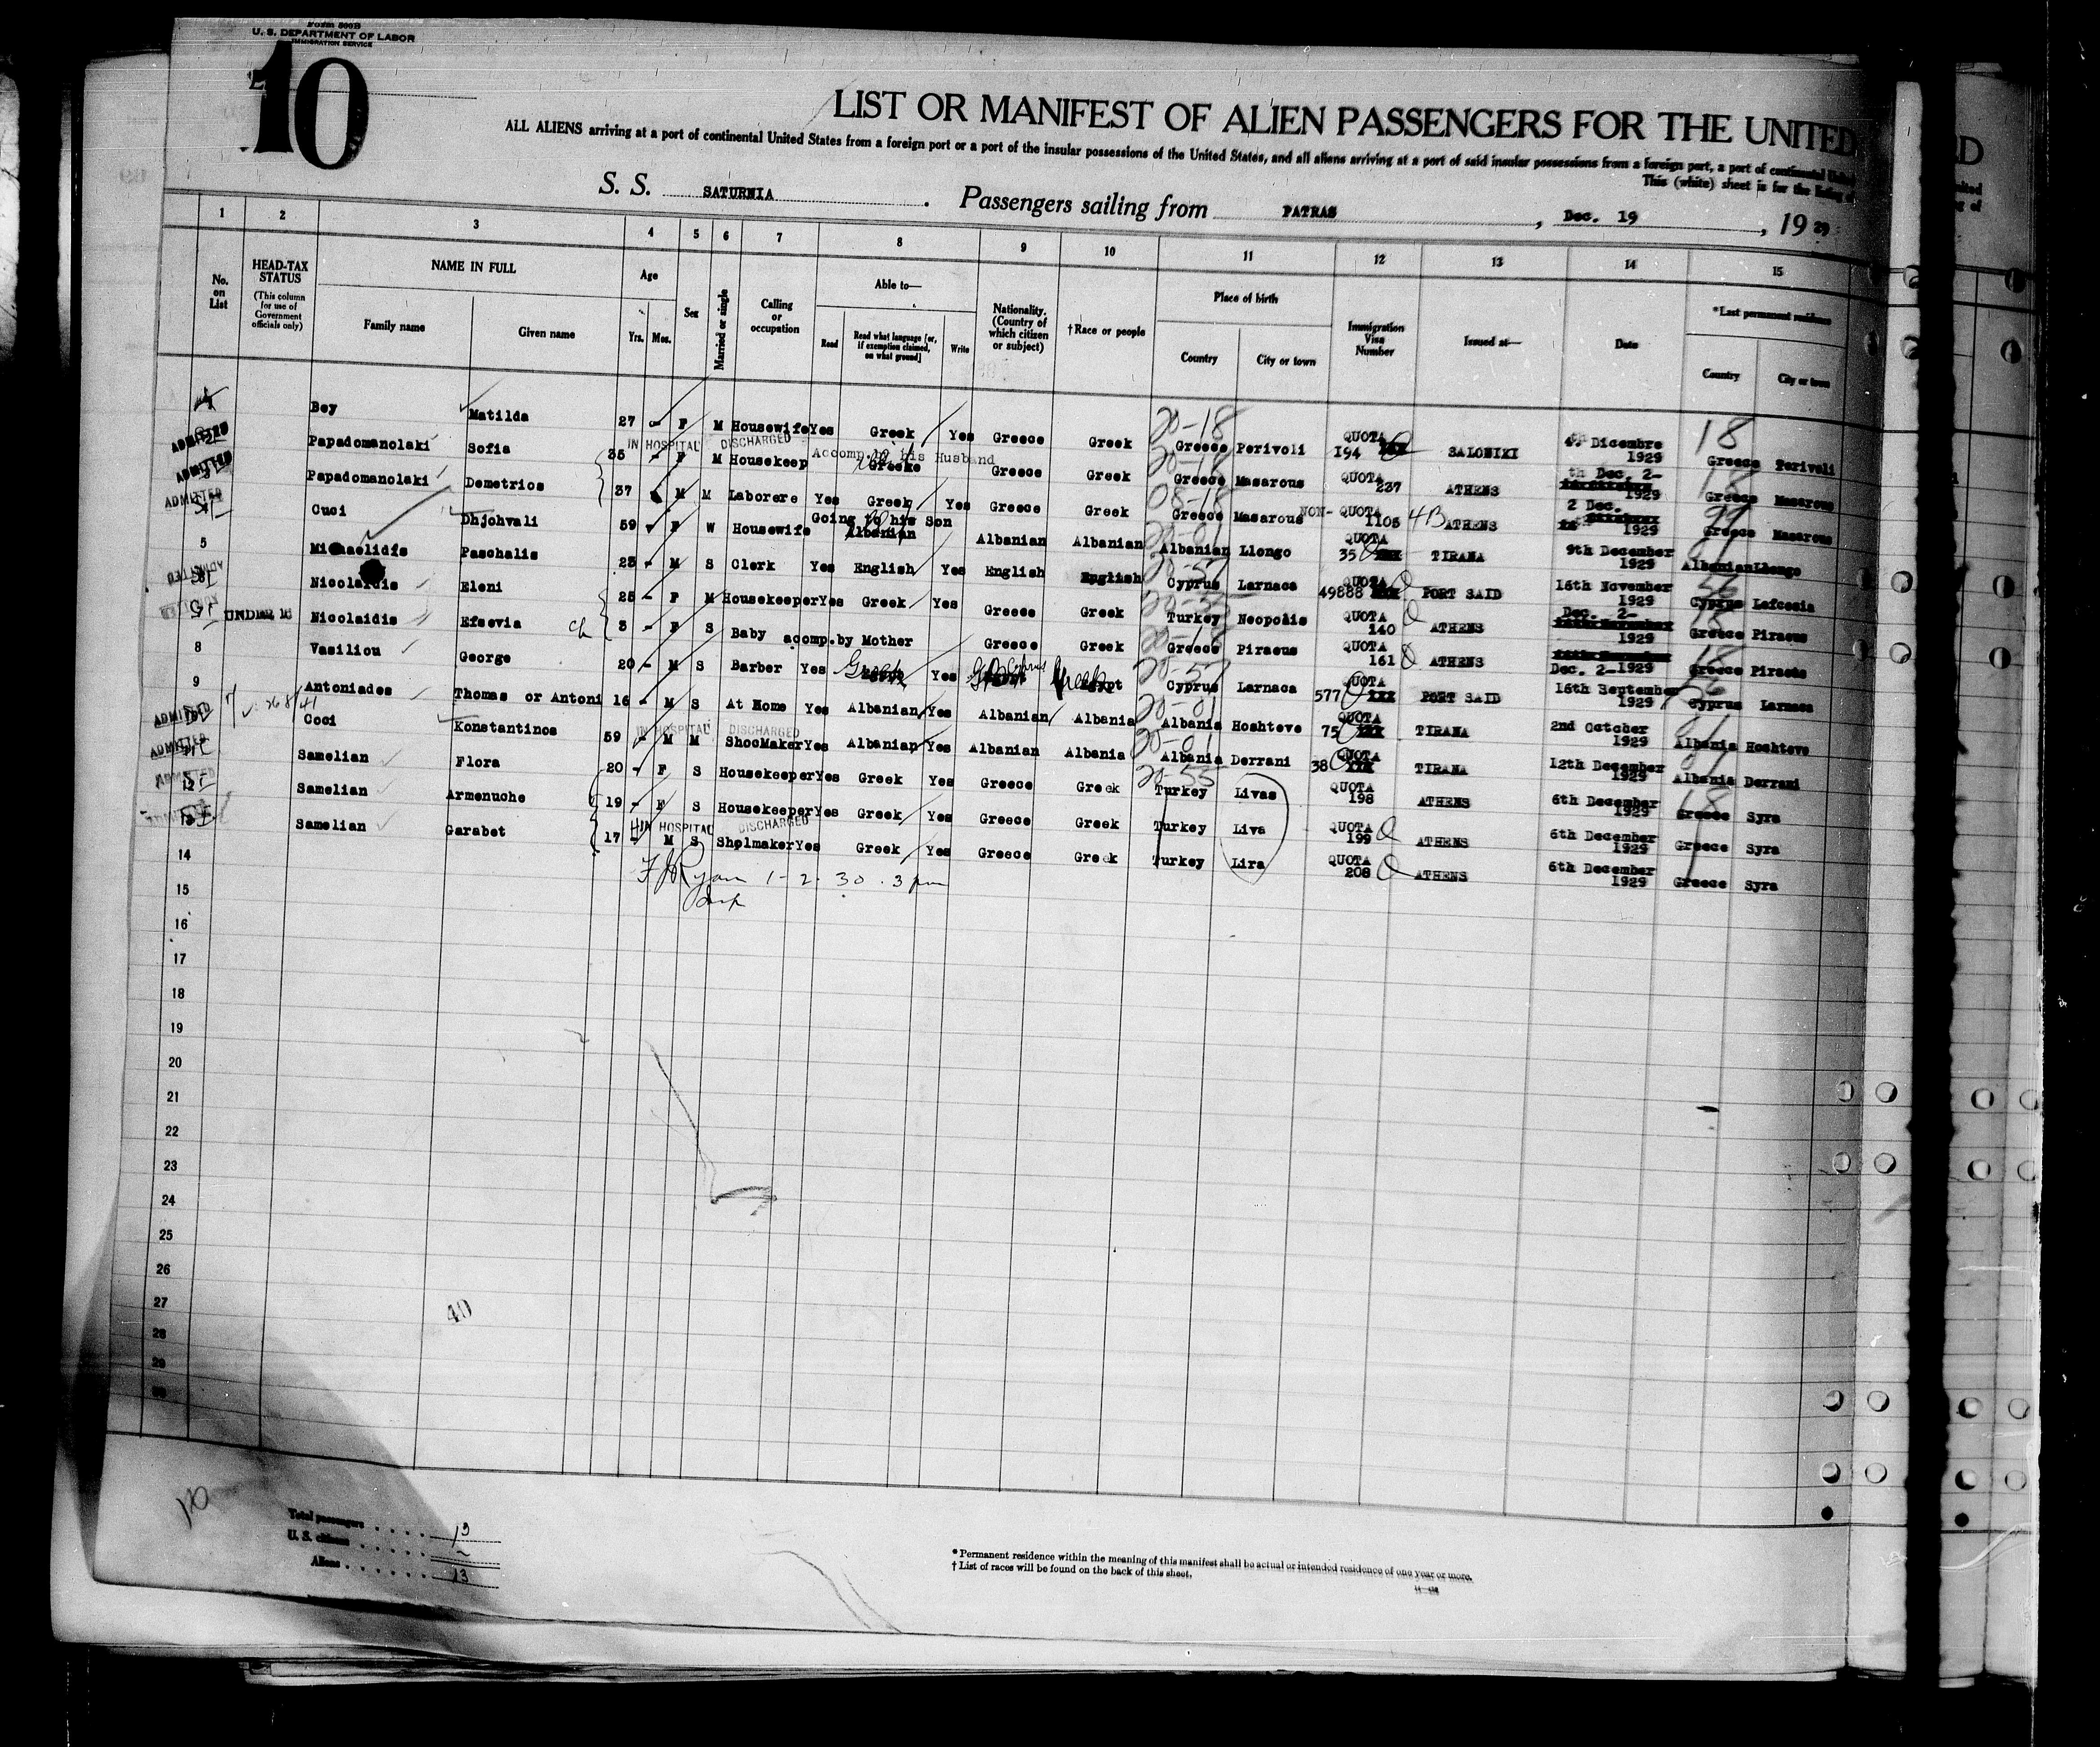 Form 500B
U. S. DEPARTMENT OF LABOR
IMMIGRATION SERVICE
10
LIST OR MANIFEST OF ALIEN PASSENGERS FOR THE UNITED
ALL ALIENS arriving at a port of continental United States from a foreign port or a port of the insular possessions of the United States, and all aliens arriving at a port of said insular possessions from a foreign port, a port of continental United
This (white) sheet is for the listing of
S. S. SATURNIA . Passengers sailing from PATRAS , Dec. 19 , 19 29
1 2 3 4 5 6 7 8 9 10 11 12 13 14 15
No. on List HEAD-TAX STATUS (This column for use of Government officials only) NAME IN FULL Family name Given name Age Yrs. Mos. Sex Married or single Calling or occupation Able to— Read Read what language [or, if exemption claimed, on what ground] Write Nationality. (Country of which citizen or subject) †Race or people Place of birth Country City or town Immigration Visa Number Issued at— Date *Last permanent residence Country City or town
Bey Matilda 27 - F M Housewife Yes Greek Yes Greece Greek 20-18 Greece Perivoli QUOTA 194 SALONIKI Dicembre 1929 18 Greece Perivoli
ADMITTED Papadomanolaki Sofia 35 - F M Housekeep IN HOSPITAL DISCHARGED Accomp.by his Husband Greece Greek 20-18 Greece Masarous QUOTA 237 ATHENS Dec. 2- 1929 18 Greece Masarous
ADMITTED Papadomanolaki Demetrios 37 M M Laborere Yes Greek Yes Greece Greek 08-18 Greece Masarous NON-QUOTA 1105 4B ATHENS 2 Dec. 1929 Greece Masarous
ADMITTED Cuci Dhjohvali 59 - F W Housewife Going to his Son Albanian Albanian Albanian 20-01 Albanian Llongo QUOTA 35 TIRANA 9th December 1929 Albanian Llongo
5 Michaelidis Paschalis 23 - M S Clerk Yes English Yes English English 20-57 Cyprus Larnaca QUOTA 49888 PORT SAID 16th November 1929 Cyprus Lefcosia
ADMITTED Nicolaidis Eleni 25 - F M Housekeeper Yes Greek Yes Greece Greek Turkey Neopolis QUOTA 140 ATHENS Dec. 2- 1929 Greece Piraeus
ADMITTED UNDER 16 Nicolaidis Efsevia ch 3 - F S Baby acomp.by Mother Greece Greek 20-18 Greece Piraeus QUOTA 161 ATHENS Dec. 2-1929 18 Greece Piraeus
8 Vasiliou George 20 - M S Barber Yes Greek Yes Cyprus Greek 20-57 Cyprus Larnaca QUOTA 577 PORT SAID 16th September 1929 Cyprus Larnaca
9 Antoniades Thomas or Antoni 16 - M S At Home Yes Albanian Yes Albanian Albania 20-01 Albania Hoshteve QUOTA 75 TIRANA 2nd October 1929 Albania Hoshteve
ADMITTED Coci Konstantinos 59 - M M ShoeMaker Yes IN HOSPITAL DISCHARGED Albanian Yes Albanian Albania 20-01 Albania Derrani QUOTA 38 TIRANA 12th December 1929 Albania Derrani
ADMITTED Samelian Flora 20 - F S Housekeeper Yes Greek Yes Greece Greek 20-55 Turkey Livas QUOTA 198 ATHENS 6th December 1929 18 Greece Syra
ADMITTED 12 Samelian Armenuche 19 - F S Housekeeper Yes Greek Yes Greece Greek Turkey Liva QUOTA 199 ATHENS 6th December 1929 Greece Syra
ADMITTED Samelian Garabet 17 - M S Sholmaker Yes IN HOSPITAL DISCHARGED Greek Yes Greece Greek Turkey Lira QUOTA 208 ATHENS 6th December 1929 Greece Syra
14 F J Ryan 1-2-30. 3 pm
15
16
17
18
19
20
21
22
23
24
25
26
27
28
29
30
40
Total passengers . . . . 13
U. S. citizens . . . . . -
Aliens . . . . . . 13
* Permanent residence within the meaning of this manifest shall be actual or intended residence of one year or more.
† List of races will be found on the back of this sheet.